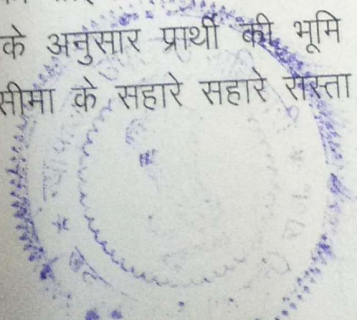 के अनुसार प्रार्थी की भूमि
सीमा के सहारे सहारे रास्ता